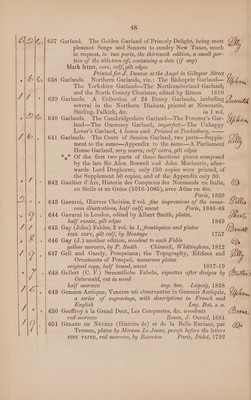 48
637 Garland. The Golden Garland of Princely Delight, being most
pleasant Songs and Sonnets to sundry New Tunes, much
in request, in two parts, the thirteenth edition, a small por-
tion of the title torn off, containing a date (if any)
black letter, rare, calf, gilt edges
Printed for J. Deacon at the Angel in Giltspur Street
638 Garland. Northern Garlands, viz.: The Bishopric Garland—
The Yorkshire Garland—The Northumberland Garland;
and the North County Chorister, edited by Ritson 1810
639 Garlands. A Collection of 24 Penny Garlands, including
several in the Northern Dialects, printed at Newcastle,
Stirling, Falkirk, &c.
640 Garlands. The Cambridgeshire Garland—The Forester's Gar-
land—The Guernsey Garland, imperfect—The Unhappy
Lover's Garland, 4 leaves each Printed at Tewkesbury.
641 Garlands. The Court of Session Garland, two parts—Supple-
ment to the same—Appendix to the same—A Parliament
House Garland, very scarce, calf extra, gilt edges
*** Of the first two parts of these facetious pieces composed
by the late Sir Alex. Boswell and John Maclaurin, after-
wards Lord Dreghorne, only 150 copies were printed, of
the Supplement 50 copies, and of the Appendix only 30.
642 Gaultier d'Arc, Histoire des Conquestes des Normands en Italie,
en Sicile et en Grèce (1016-1085), avec Atlas en 4to.
Paris, 1830
643 Gavarni, Œuvres Choisies, 2 vol. fine impressions of the nume-
rous illustrations, half calf, uncut Paris, 1846-48
644 Gavarni in London, edited by Albert Smith, plates,
half russia, gilt edges 1849
645 Gay (John) Fables, 2 vol. in 1, frontispiece and plates
VERY FINE COPY, calf gilt, by Montagu 1757
646 Gay (J.) another edition, woodcut to each Fable
yellow morocco, by F. Smith Chiswick, Whittingham, 1812
647 Gell and Gandy, Pompeiana; the Topography, Edifices and
Ornaments of Pompeii, numerous plates
original copy, half bound, uncut 1817-19
648 Gellert (C. F.) Sæmmtliche Fabeln, vignettes after designs by
Osterwald, cut in wood
half morocco imp. 8vo. Leipzig, 1838
649 Gemmæ Antiquæ, Veneres uti observantur in Gemmis Antiquis,
a series of engravings, with descriptions in French and
English Lug. Bat. s. a.
650 Geoffroy à la Grand Dent, Les Conquestes, &c. woodcuts
red morocco Rouen, J. Oursel, 1681
651 GERARD DE NEVERS (Histoire de) et de la Belle Euriant, par
Tressan, plates by Moreau Le Jeune, proofs before the letters
FINE PAPER, red morocco, by Bozerian Paris, Didot, 1792